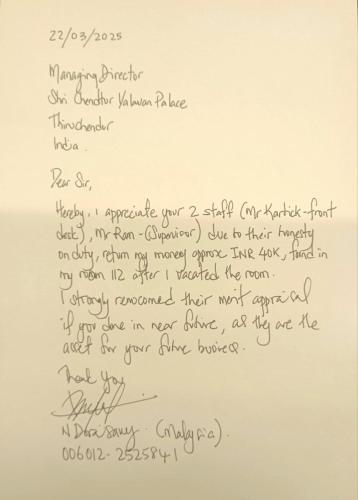 22/03/2025
Managing Director
Shri Chendur Valavan Palace
Thiruchendur
India.
Dear Sir,
Hereby, I appreciate your 2 staff (Mr Kartick-front
desk), Mr Ram-(Supervisor) due to their honesty
on duty, return my money approx INR 40K, found in
my room 112 after I vacated the room.
I strongly renocomed their merit appraisal
if you done in near future, as they are the
asset for your future business.
Thank You
N Dorai Samy. (Malaysia).
006012-2525841